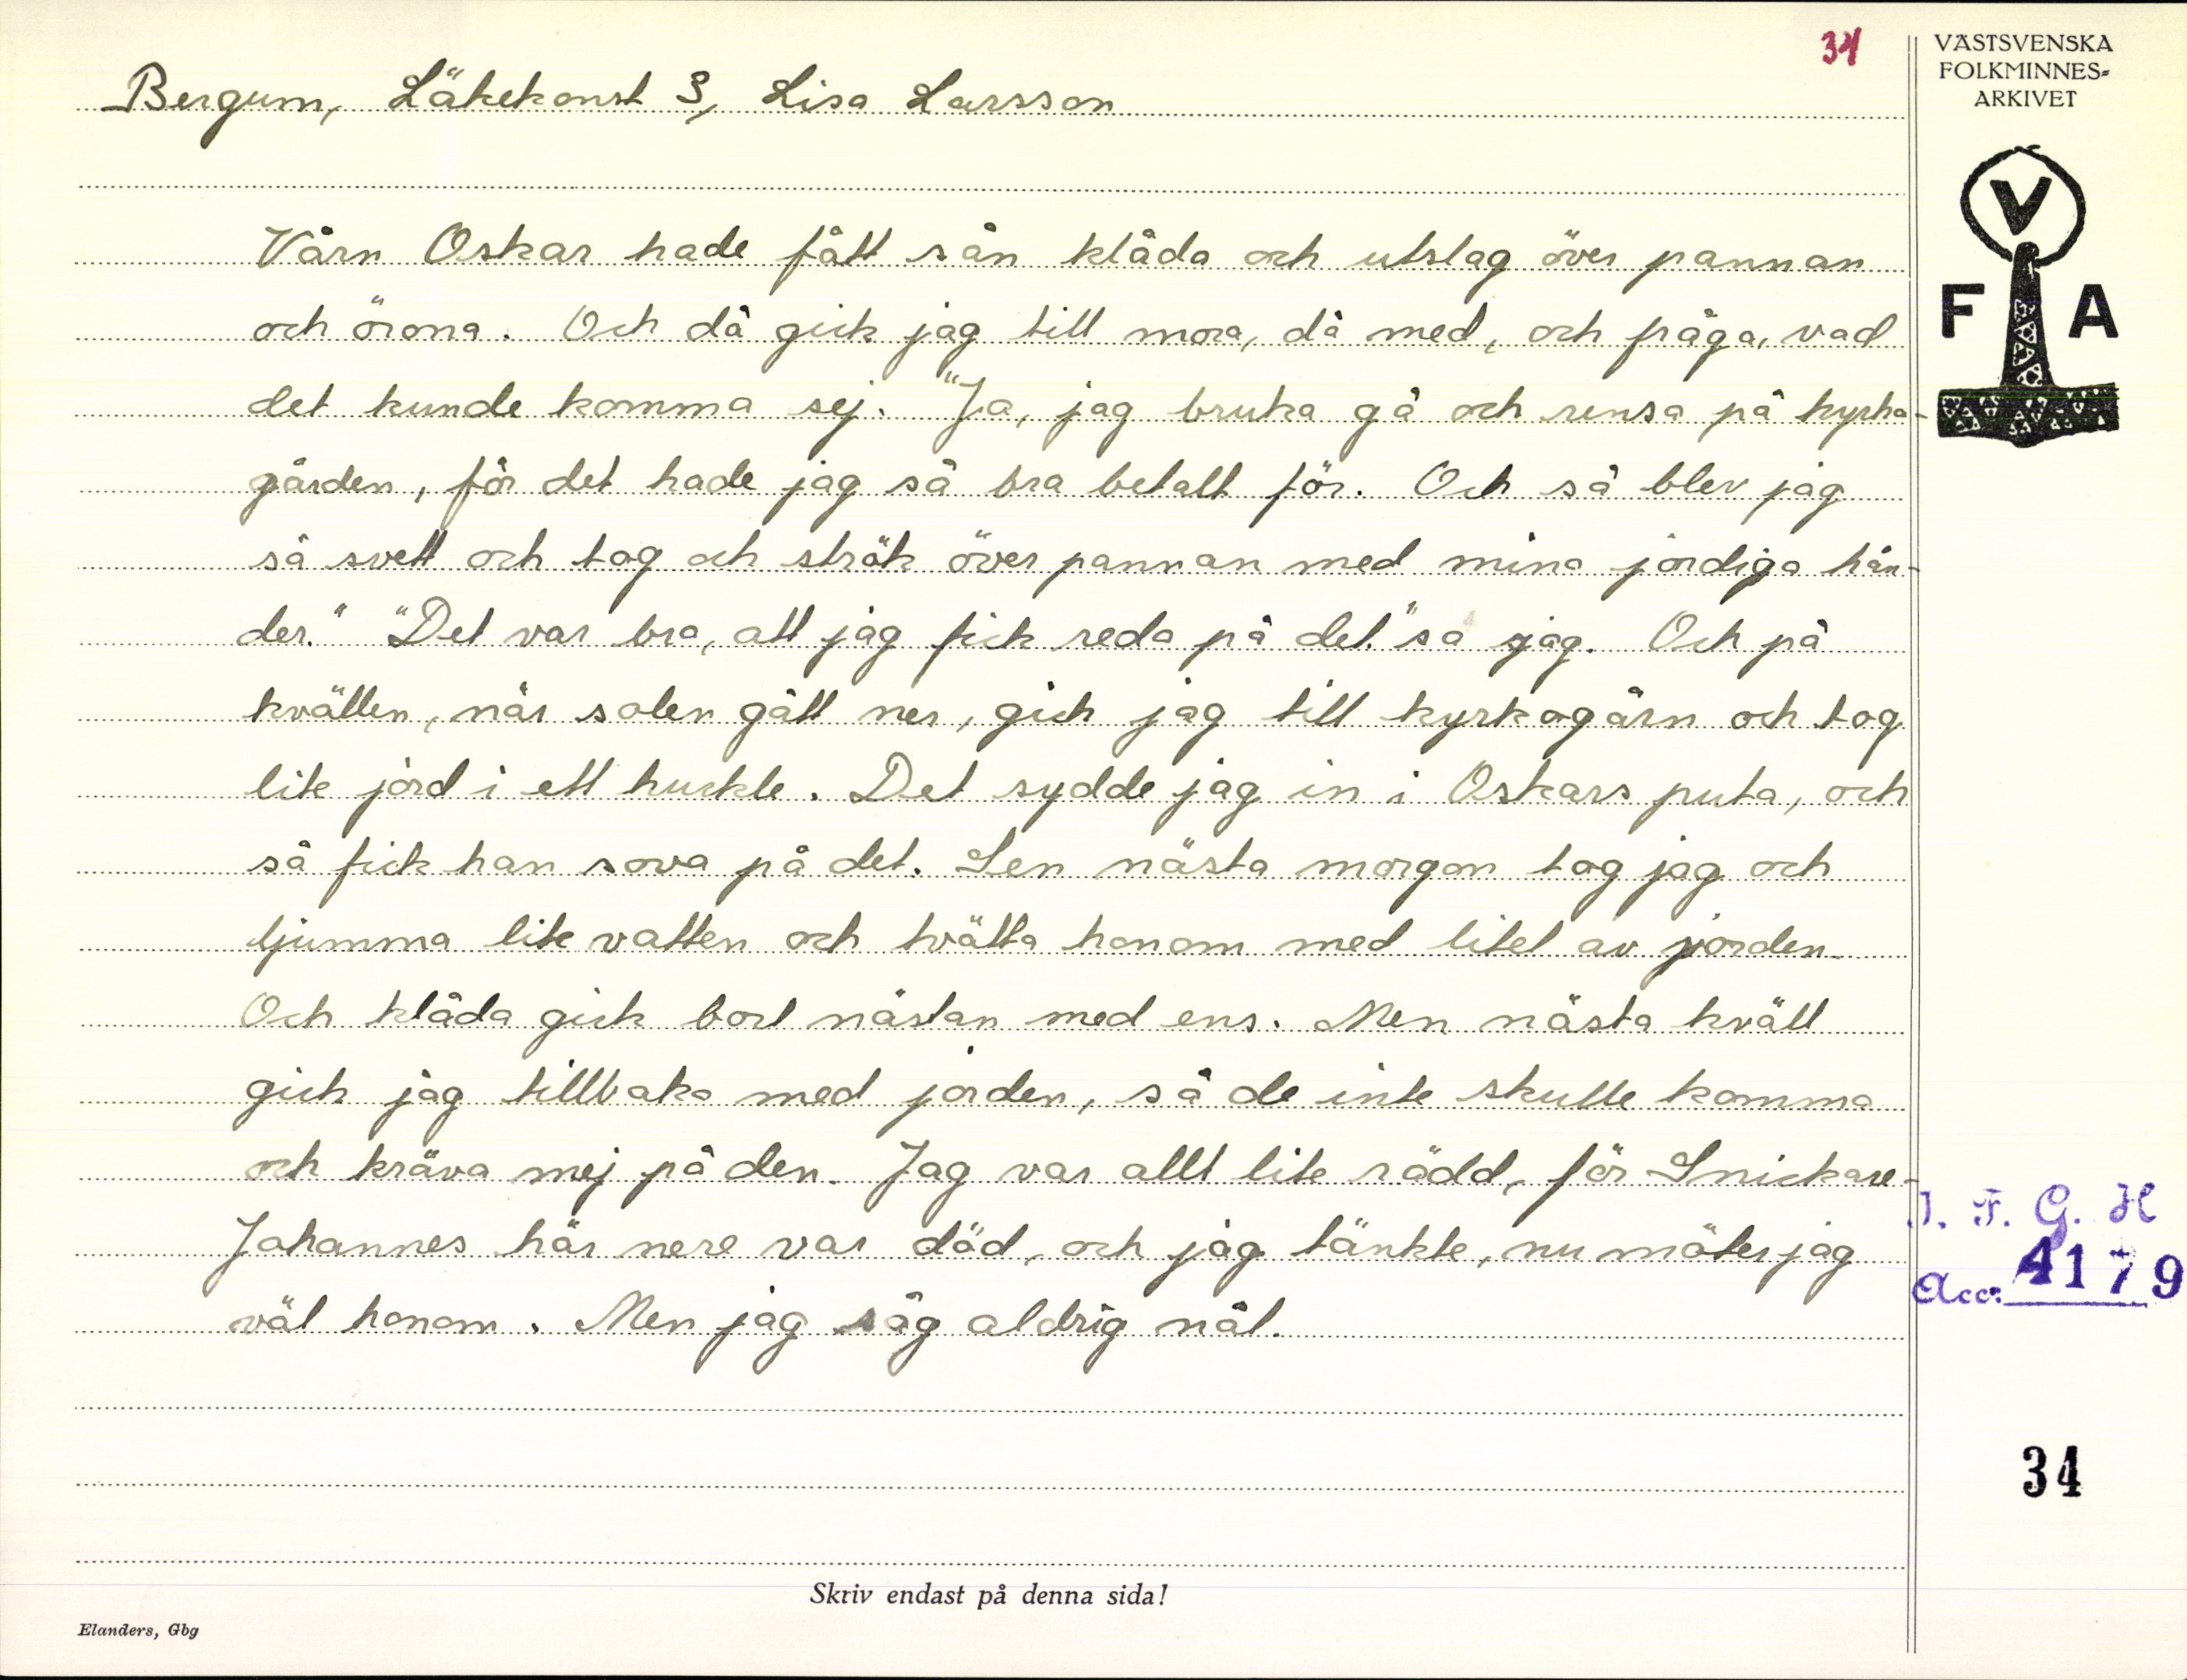 34
VÄSTSVENSKA
FOLKMINNES-
ARKIVET
Bergum, Läkekonst 3, Lisa Larsson
V
F A
Vårn Oskar hade fått sån klåda och utslag över pannan
och örona. Och då gick jag till mora, då med, och fråga, vad
det kunde komma sej. "Ja, jag bruka gå och rensa på kyrko-
gården, för det hade jag så bra betalt för. Och så blev jag
så svett och tog och strök över pannan med mina jordiga hän-
der." "Det var bra, att jag fick reda på det." sa jag. Och på
kvällen, när solen gått ner, gick jag till kyrkogårn och tog
lite jord i ett huckle. Det sydde jag in i Oskars puta, och
så fick han sova på det. Sen nästa morgon tog jag och
ljumma lite vatten och tvätta honom med litet av jorden.
Och klåda gick bort nästan med ens. Men nästa kväll
gick jag tillbaka med jorden, så de inte skulle komma
och kräva mej på den. Jag var allt lite rädd, för Snickare-
Johannes här nere var död, och jag tänkte, nu möter jag
väl honom. Men jag såg aldrig nåt.
I. F. G. H
Acc: 4179
34
Skriv endast på denna sida!
Elanders, Gbg